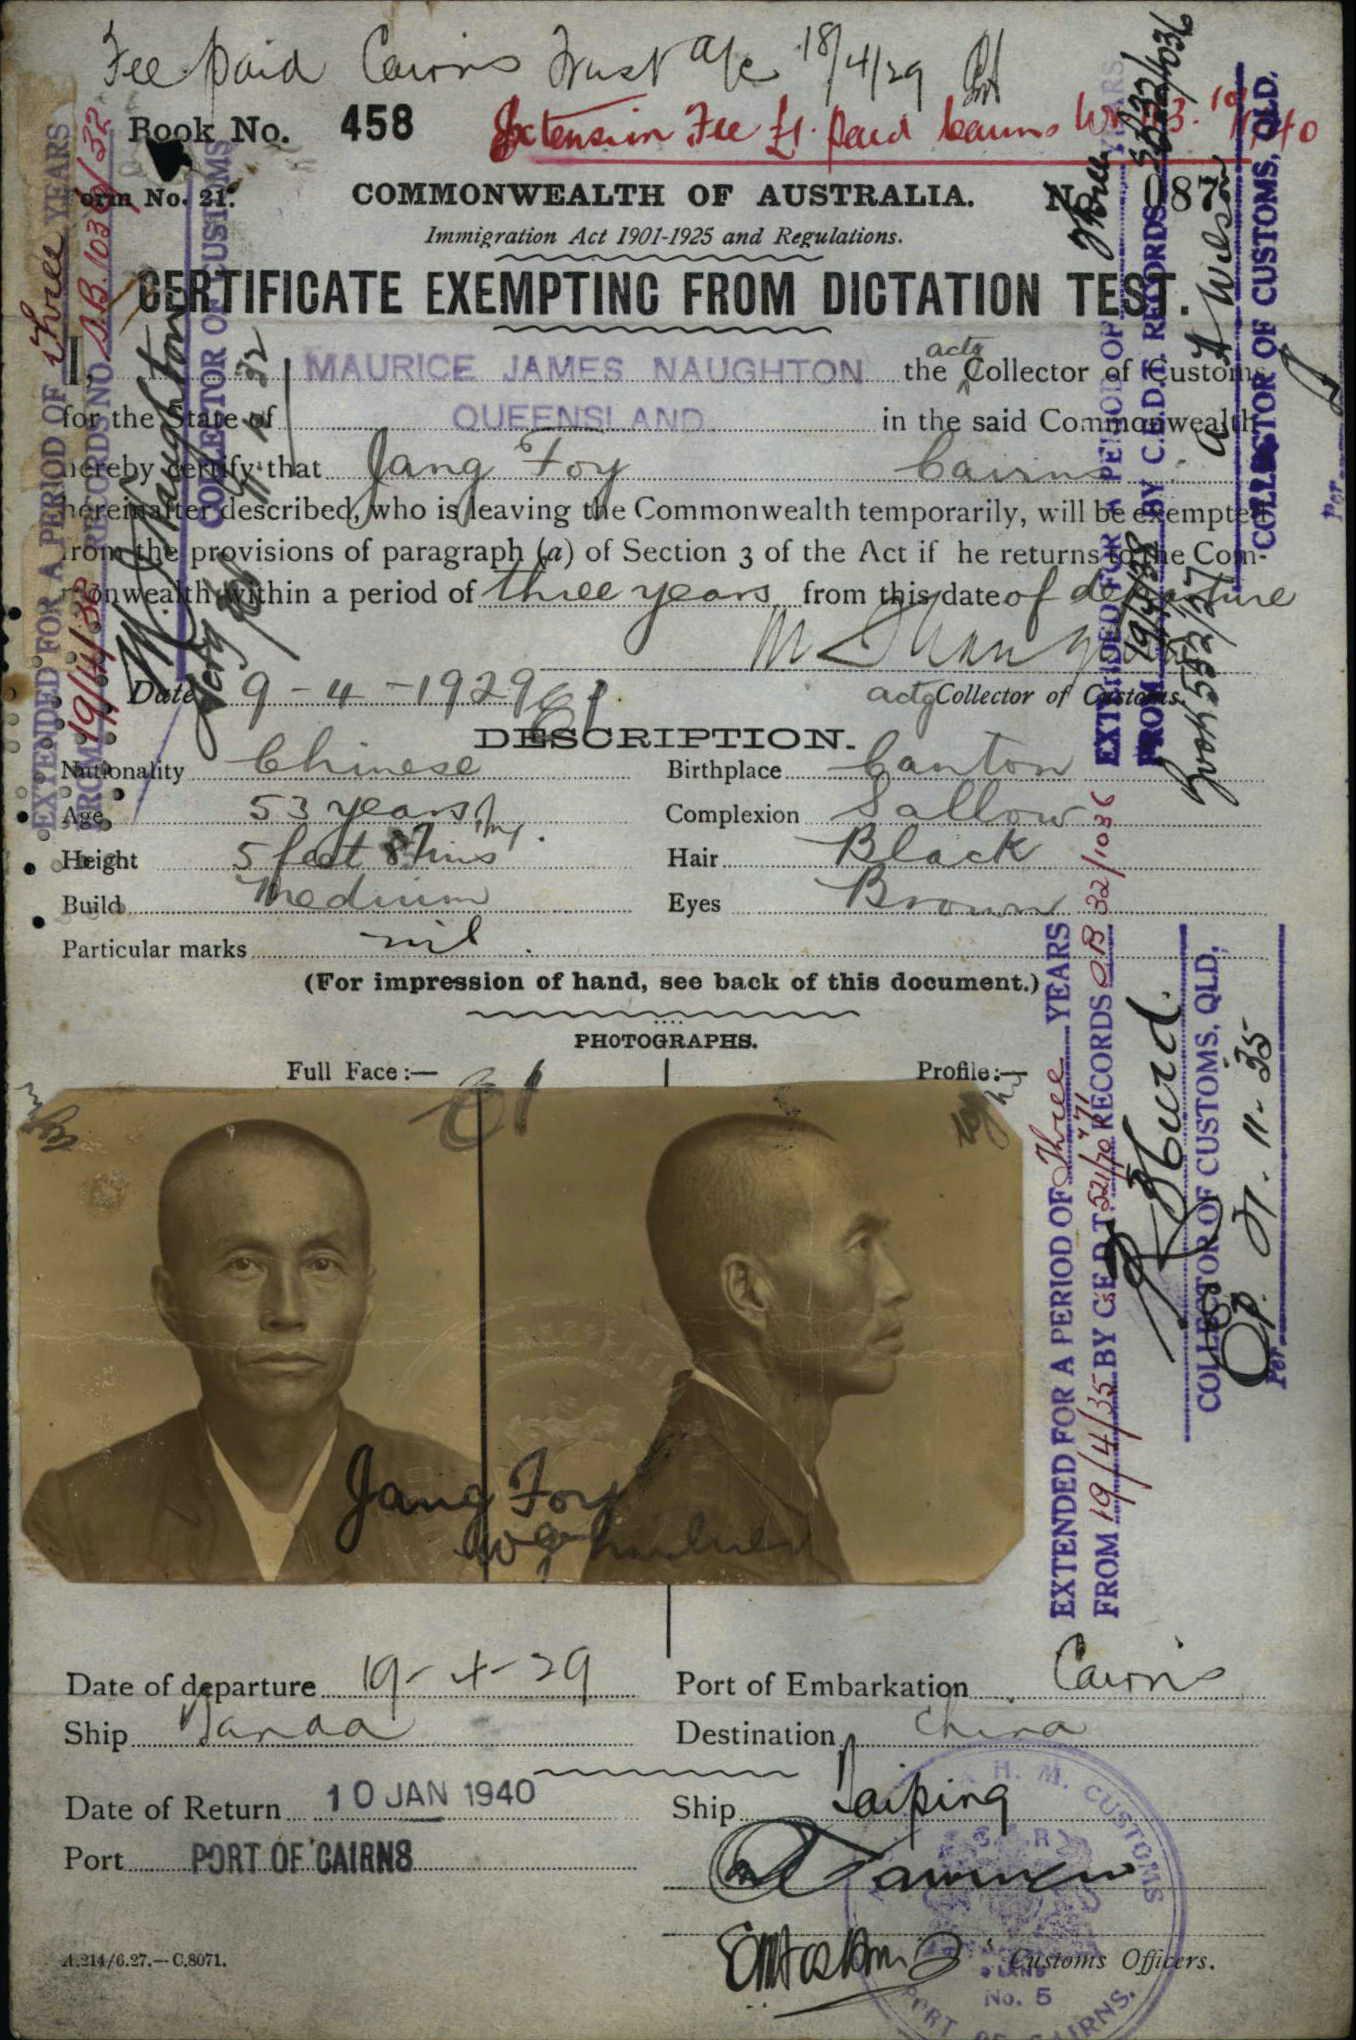 Fee paid Cairns Trust a/c 18/4/29
Book No. 458
Extension Fee £1. paid Cairns
Form No. 21.
COMMONWEALTH OF AUSTRALIA.
No 087
Immigration Act 1901-1925 and Regulations.
CERTIFICATE EXEMPTING FROM DICTATION TEST.
I, MAURICE JAMES NAUGHTON the actg Collector of Customs
for the State of QUEENSLAND in the said Commonwealth
hereby certify that Jang Foy Cairns
hereinafter described, who is leaving the Commonwealth temporarily, will be exempted
from the provisions of paragraph (a) of Section 3 of the Act if he returns to the Com-
monwealth within a period of three years from this date of departure
M J Naughton
Date 9-4-1929
actg Collector of Customs.
DESCRIPTION.
Nationality Chinese
Birthplace Canton
Age 53 years
Complexion Sallow
Height 5 feet 8 ins
Hair Black
Build Medium
Eyes Brown
Particular marks nil
(For impression of hand, see back of this document.)
PHOTOGRAPHS.
Full Face:—
Profile:—
Jang Foy
Date of departure 19-4-29
Port of Embarkation Cairns
Ship Tanda
Destination China
Date of Return 10 JAN 1940
Ship Taiping
Port PORT OF CAIRNS
Customs Officers.
A.214/6.27.—C.8071.
H. M. CUSTOMS
No. 5
PORT OF CAIRNS.
EXTENDED FOR A PERIOD OF three YEARS
FROM 19/4/32 RECORDS NO
M. J. Naughton
COLLECTOR OF CUSTOMS
EXTENDED FOR A PERIOD OF three YEARS
FROM 19/4/38 BY C.E.D.T. RECORDS
Book 552/27
A Wilson
COLLECTOR OF CUSTOMS, QLD.
Per
EXTENDED FOR A PERIOD OF Three YEARS
FROM 19/4/35 BY C.E.D.T. RECORDS
COLLECTOR OF CUSTOMS, QLD.
Per